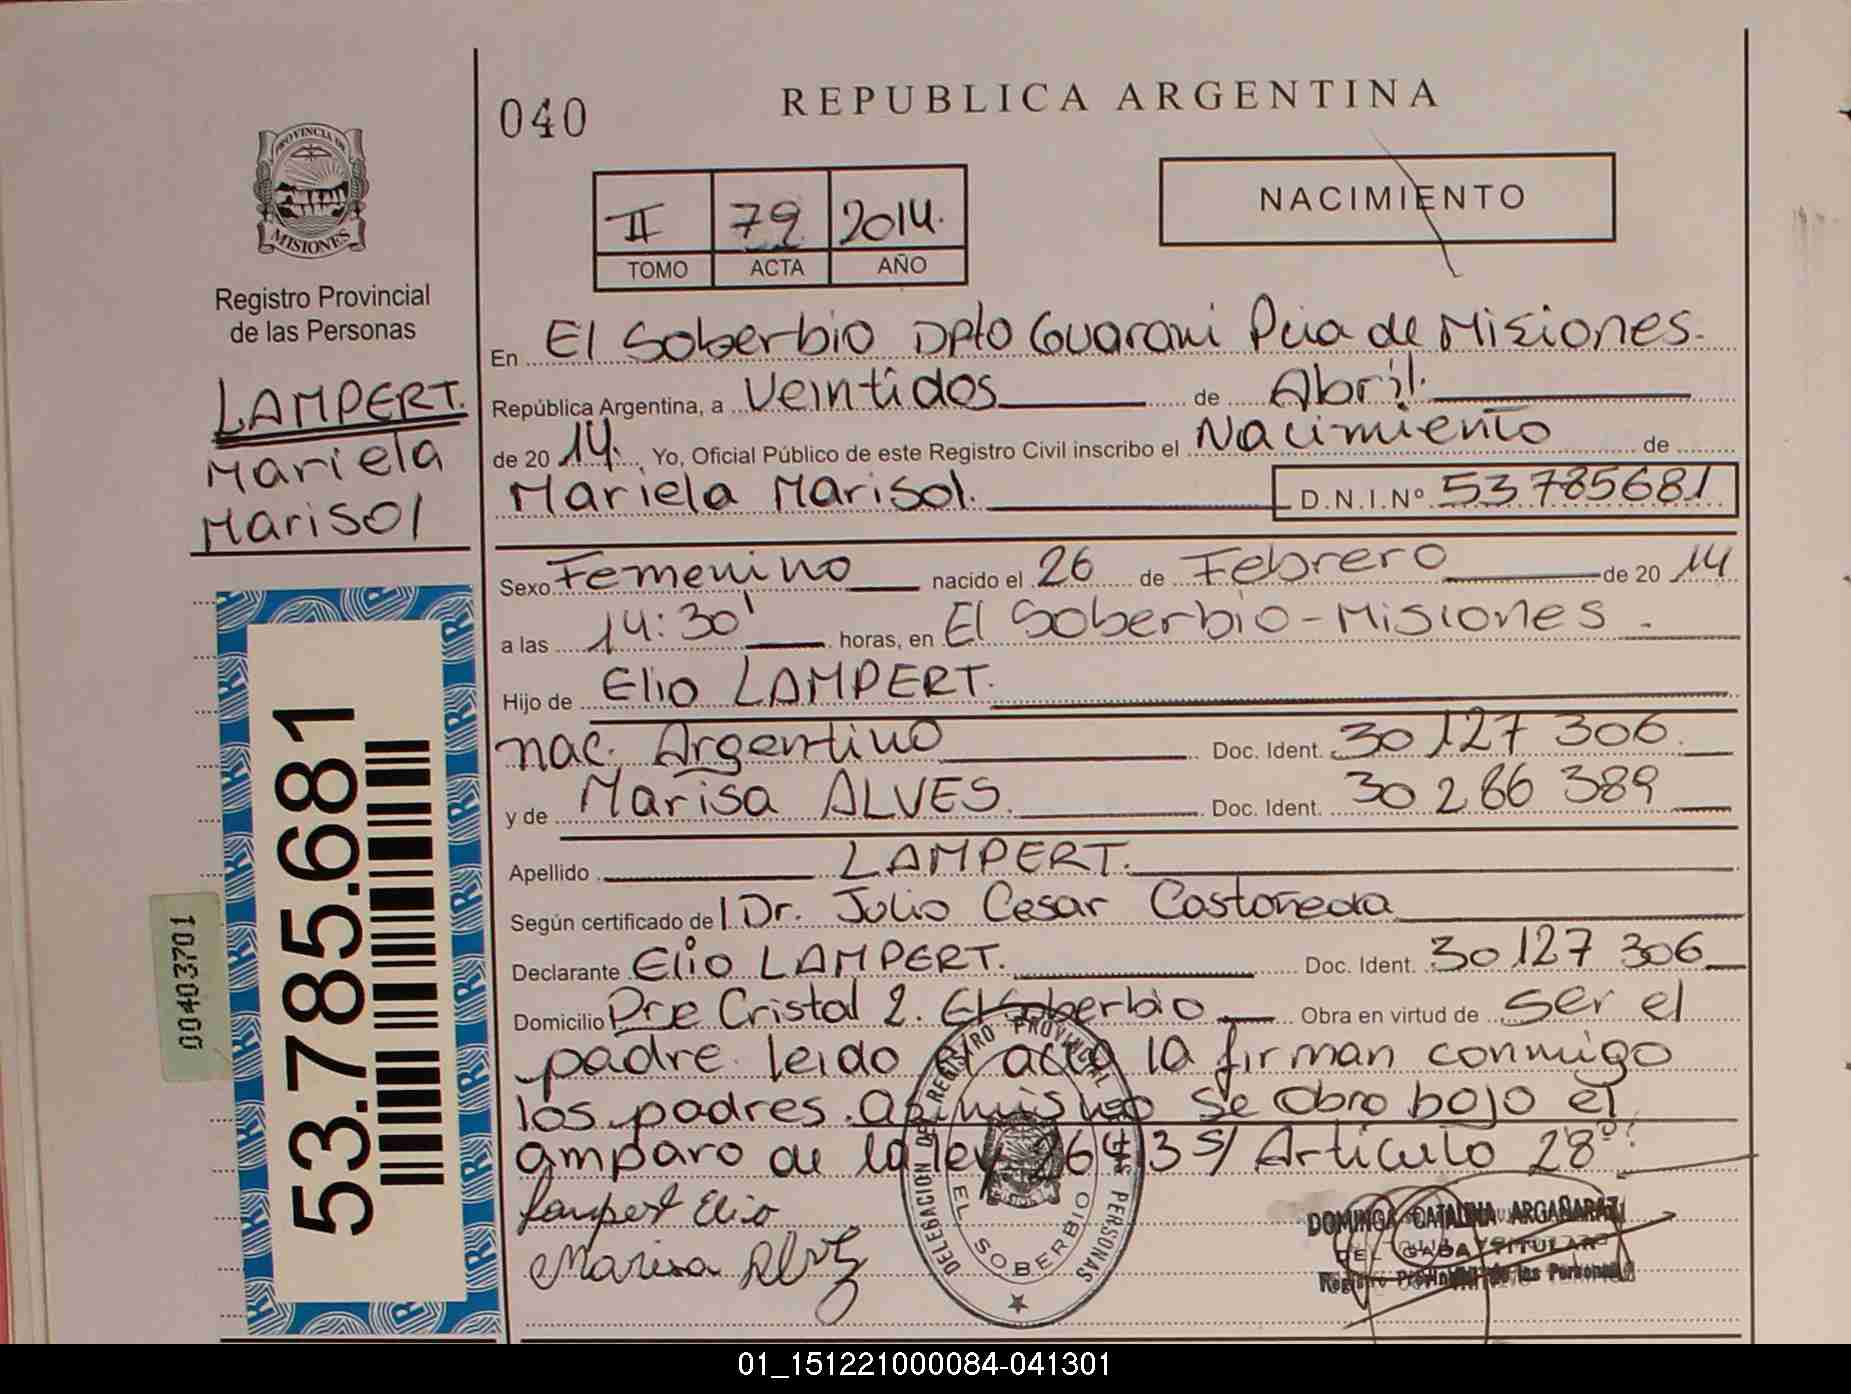 040
REPUBLICA ARGENTINA
PROVINCIA DE
MISIONES
Registro Provincial
de las Personas
II 79 2014.
TOMO ACTA AÑO
NACIMIENTO
LAMPERT.
Mariela
Marisol
En El Soberbio Dpto Guarani Pcia de Misiones.
República Argentina, a Veintidos de Abril.
de 2014. Yo, Oficial Público de este Registro Civil inscribo el Nacimiento de
Mariela Marisol. D.N.I.Nº 53785681
Sexo Femenino nacido el 26 de Febrero de 2014
a las 14:30' horas, en El Soberbio - Misiones.
Hijo de Elio LAMPERT.
nac. Argentino Doc. Ident. 30 127 306.
y de Marisa ALVES. Doc. Ident. 30 286 389
Apellido LAMPERT.
Según certificado del Dr. Julio Cesar Castañeda
Declarante Elio LAMPERT. Doc. Ident. 30 127 306
Domicilio Pje Cristal 2. El Soberbio Obra en virtud de ser el
padre. leido el acta la firman conmigo
los padres. asimismo se obro bajo el
amparo de la ley 26413 s/ Articulo 28º.
Lampert Elio
Marisa
DELEGACION DEL REGISTRO PROVINCIAL DE LAS PERSONAS
EL SOBERBIO
DOMINGA CATALINA ARGAÑARAZ
Registro Provincial de las Personas
53.785.681
00403701
01_151221000084-041301